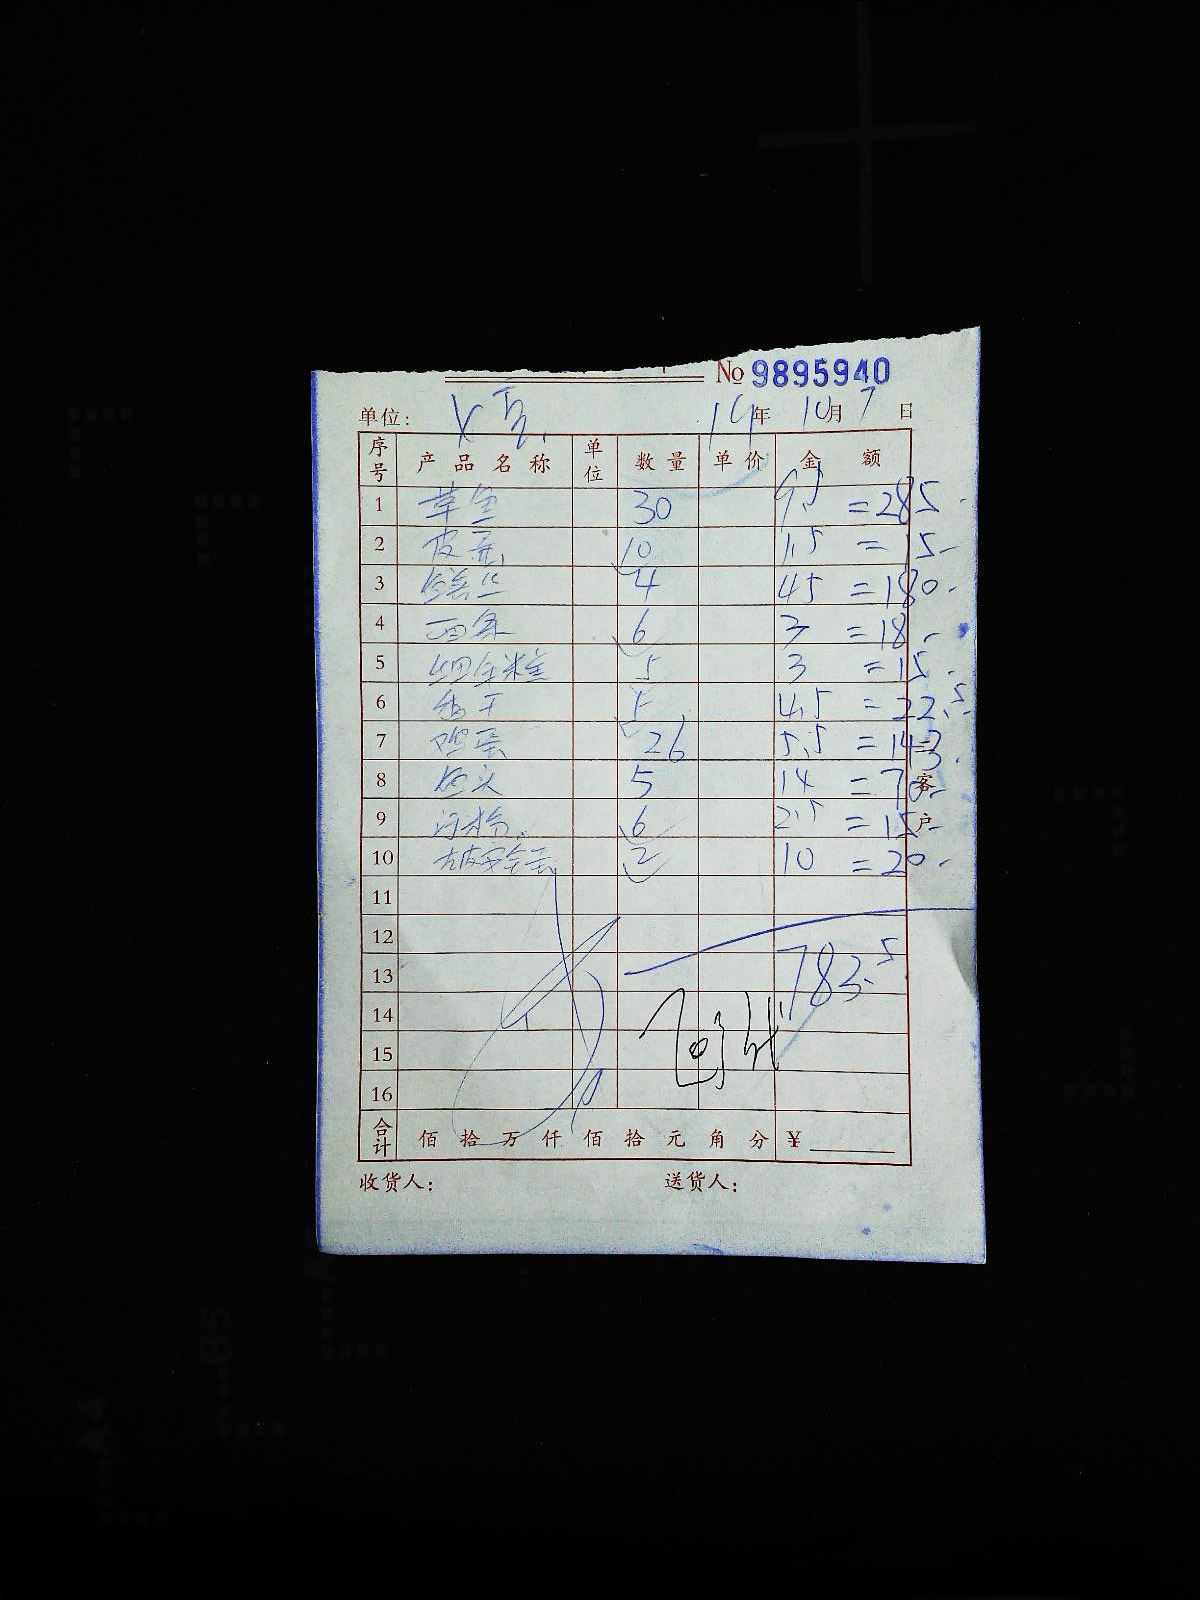 No 9895940
单位: 14年 10月 7日
序号 产品名称 单位 数量 单价 金额
1 草鱼 30 9.5 =285-
2 皮蛋 10 1.5 =15-
3 鳝丝 4 45 =180-
4 面条 6 3 =18-
5 5 3 =15-
6 5 4.5 =22.5-
7 鸡蛋 26 5.5 =143-
8 鱼头 5 14 =70-
9 6 2.5 =15-
10 2 10 =20-
11
12
13 783.5
14
15
16
客户
合计 佰拾万仟佰拾元角分 ¥
收货人: 送货人: